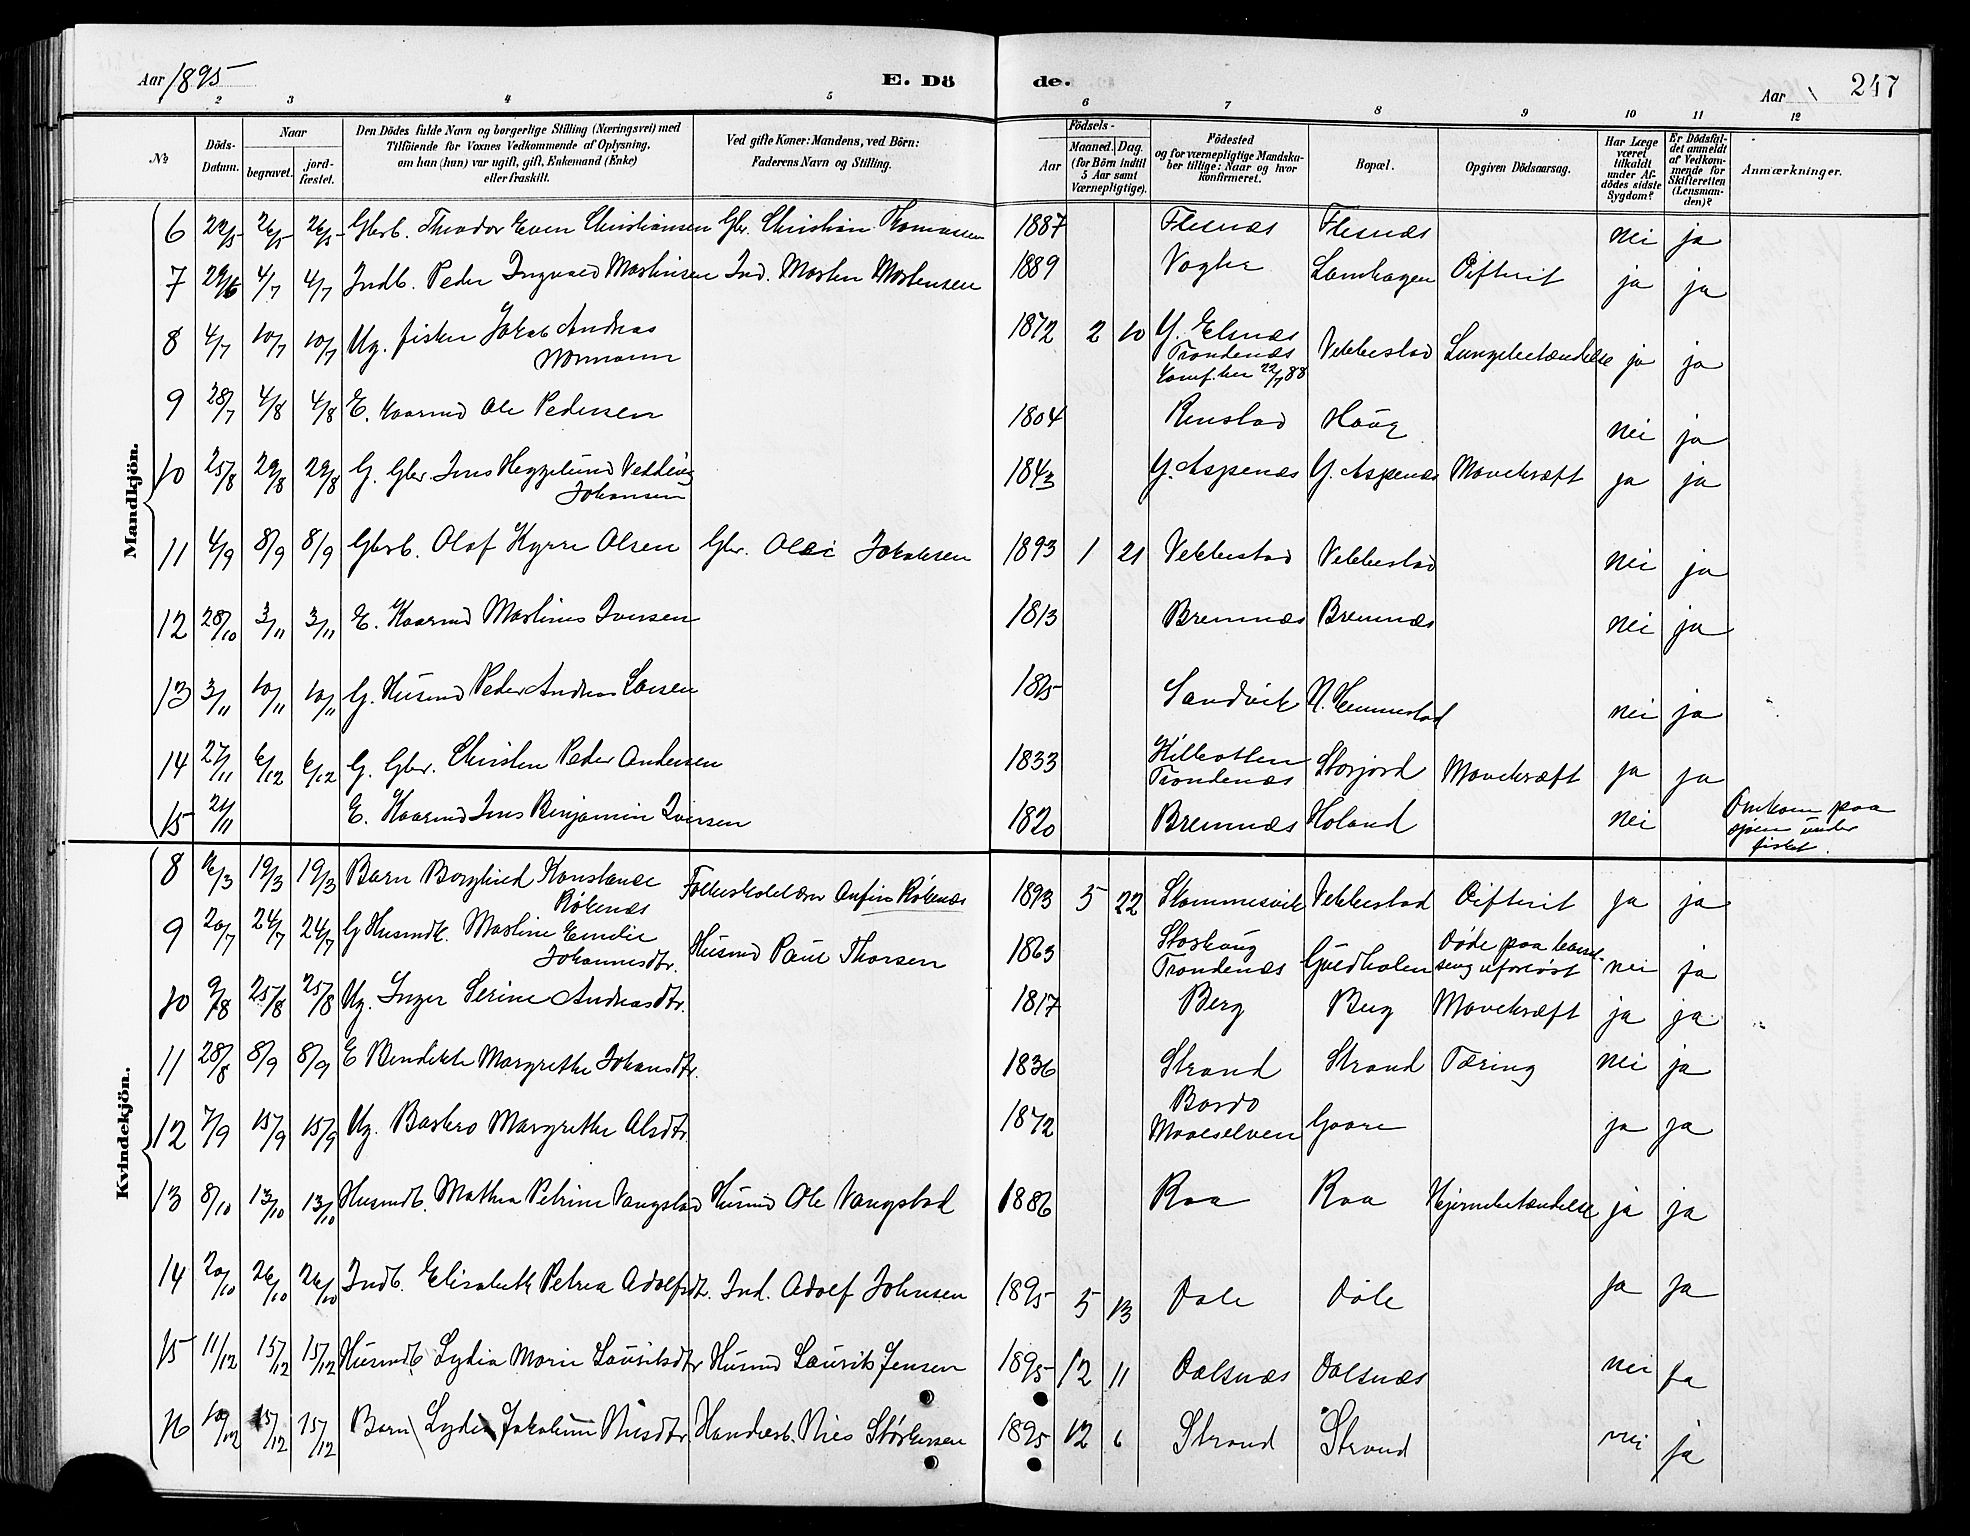 Aar 1895 E. Dö de. Aar 247
1 2 3 4 5 6 7 8 9 10 11 12
№ Döds-Datum. Naar begravet. jord-fæstet. Den Dödes fulde Navn og borgerlige Stilling (Næringsvei) med Tilföiende for Voxnes Vedkommende af Oplysning, om han (hun) var ugift, gift, Enkemand (Enke) eller fraskilt. Ved gifte Koner: Mandens, ved Börn: Faderens Navn og Stilling. Födsels- Aar Maaned. Dag. (for Börn indtil 5 Aar samt Værnepligtige). Födested og for værnepligtige Mandska-ber tillige: Naar og hvor Konfirmeret. Bopæl. Opgiven Dödsaarsag. Har Læge været tilkaldt under Af-dödes sidste Sygdom? Er Dödsfal-det anmeldt af Vedkom-mende for Skifteretten (Lensman-den)? Anmærkninger.
Mandkjön.
6 22/5 26/5 26/5 Gbrb. Theodor Even Christiansen Gbr. Christian Thomassen 1887 Flesnæs Flesnæs nei ja
7 29/6 4/7 4/7 Indb. Peder Ingvald Martinsen Ind. Morten Mortensen 1889 Lamhagen Difterit ja ja
8 4/7 10/7 10/7 Ug. fisker Jakob Andreas
Normann 1872 2 10 Y. Elsnæs
Trondenæs
Konf. her 22/7 88 Vebbestad Lungebetændelse ja ja
9 28/7 4/8 4/8 E. Kaarmd Ole Pedersen 1804 Renstad Haug nei ja
10 25/8 29/8 29/8 G. Gbr. Jens Heggelund Vedding
Johansen 1843 Y. Aspenæs Y. Aspenæs Mavekræft ja ja
11 4/9 8/9 8/9 Gbrb. Olaf Kyrre Olsen Gbr. Olai Jakobsen 1893 1 21 Vebbestad Vebbestad nei ja
12 28/10 3/11 3/11 E. Kaarmd Martinus Iversen 1813 Bremnæs Bremnæs nei ja
13 3/11 10/11 10/11 G. Husmd Peder Andreas Larsen Sandvik N. Hemmestad nei ja
14 27/11 6/12 6/12 G. Gbr. Christen Peder Andersen 1833 Kilbotten
Trondenæs Storjord Mavekræft ja ja
15 21/11 E. Kaarmd Jens Benjamin Iversen 1820 Bremnæs Holand nei Omkom paa
sjøen under
fisket.
Kvindekjön.
8 16/3 19/3 19/3 Barn Borghild Konstanse
Rökenæs Folkeskolelærer Anfin Rökenæs 1893 5 22 Stommesvik Vebbestad Difterit ja ja
9 20/7 24/7 24/7 G Husmdk. Martine Emelie
Johannesdtr. Husmd Paul Thorsen 1863 Storhaug
Trondenæs Gudholen Døde paa barsel-
seng uforløst nei ja
10 9/8 25/8 25/8 Ug. Inger Serine Andreasdtr. 1817 Berg Berg Mavekræft ja ja
11 28/8 8/9 8/9 E Bendikte Margrethe Johansdtr. 1836 Strand Strand Tæring nei ja
12 7/9 15/9 15/9 Ug. Barbro Margrethe Olsdtr. 1872 Bardo
Maaselven Gaare ja ja
13 8/10 13/10 13/10 Husmdb. Mathea Petrine Vangstad Husmd Ole Vangstad 1886 Raa Raa Hjernebetændelse ja ja
14 20/10 26/10 26/10 Indb. Elisabeth Petrea Adolfsdtr. Ind. Adolf Johnsen 1895 5 13 Dale Dale ja ja
15 11/12 15/12 15/12 Husmdb. Lydia Marie Lauritsdtr Husmd Laurits Jensen 1895 12 11 Dalsnæs Dalsnæs nei ja
16 10/12 15/12 15/12 Barn Lydia Jakobine Nilsdtr Handelsb. Nils Størkersen 1895 12 6 Strand Strand nei ja